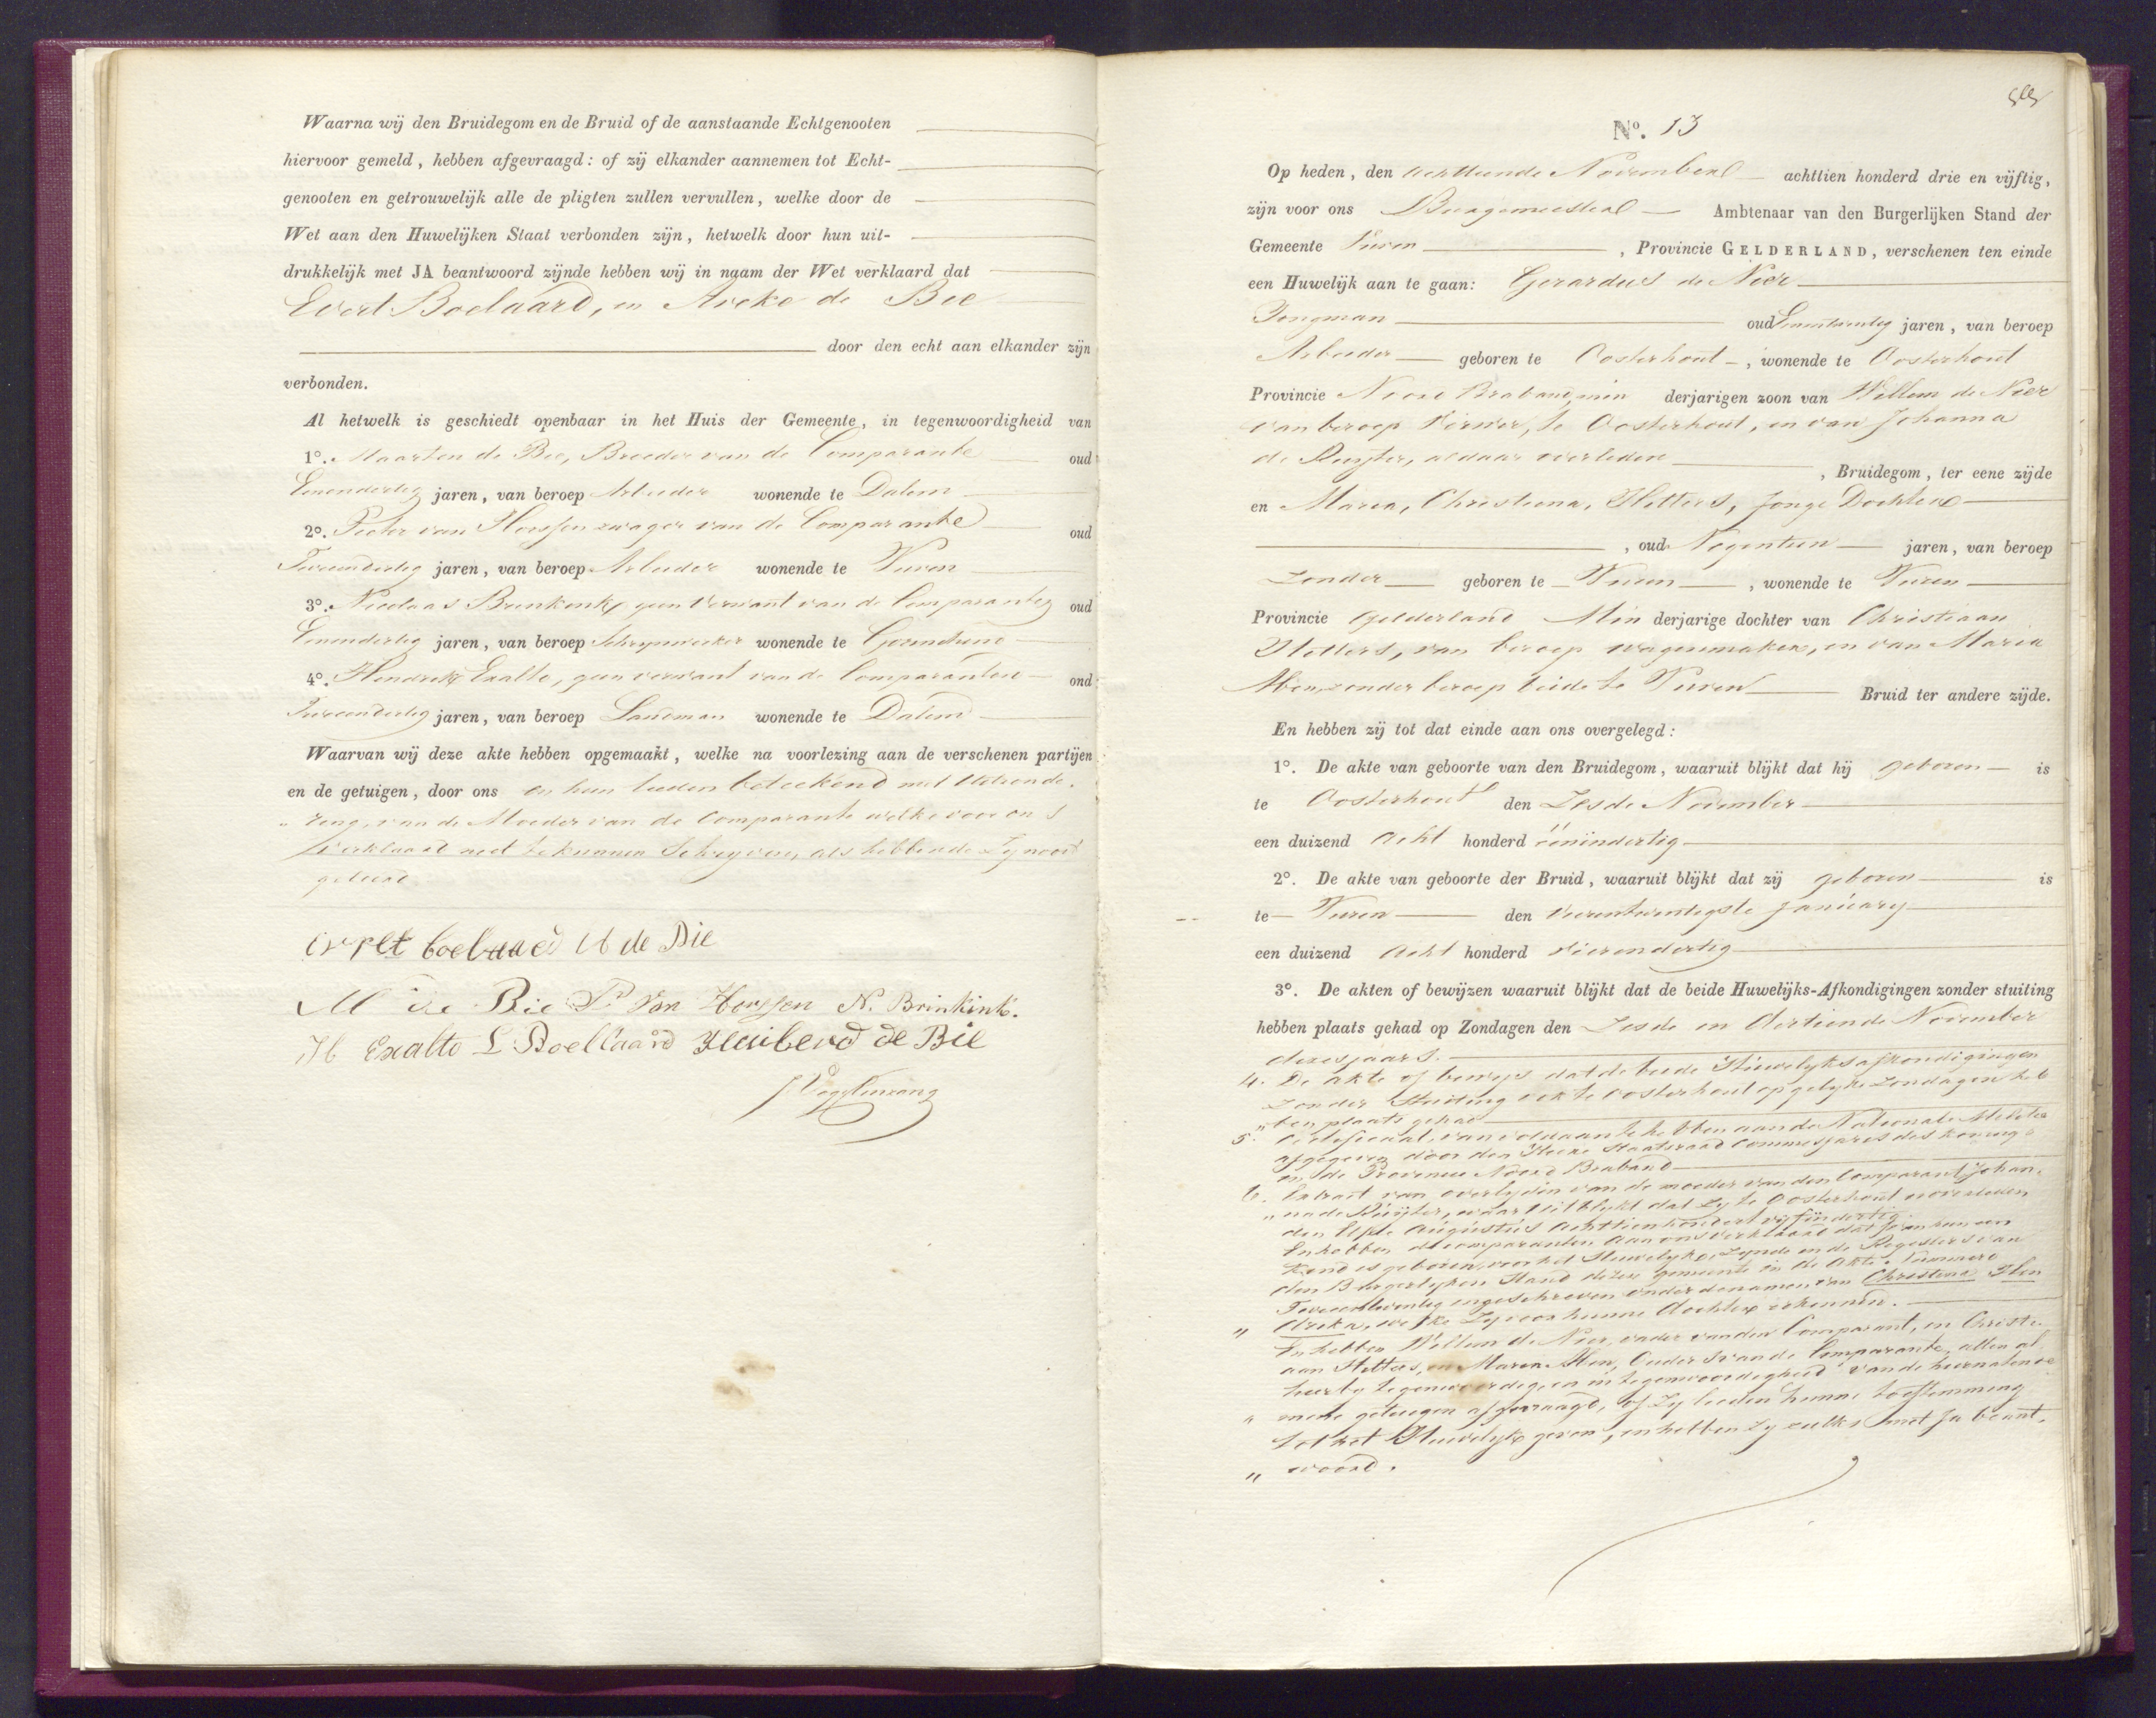 Waarna wij den Bruidegom en de Bruid of de aanstaande Echtgenooten
hiervoor gemeld, hebben afgevraagd: of zij elkander aannemen tot Echt-
genooten en getrouwelijk alle de pligten zullen vervullen, welke door de
Wet aan den Huwelijken Staat verbonden zijn, hetwelk door hun uit-
drukkelijk met JA beantwoord zijnde hebben wij in naam der Wet verklaard dat
Evert Boelaard, en de Bie
door den echt aan elkander zijn
verbonden.
Al hetwelk is geschiedt openbaar in het Huis der Gemeente, in tegenwoordigheid van
1°. Maarten de Bie, Broeder van de Comparante oud
Eenendertig jaren, van beroep Arbeider wonende te Dalem
2°. Pieter van Horssen zwager van de Comparante oud
Tweeendertig jaren, van beroep Arbeider wonende te Vuren
3°. Nicolaas Brinkink, geen verwant van de Comparanten oud
Eenendertig jaren, van beroep Schrijnwerker wonende te Gorinchem
4°. Hendrik Exalto, geen verwant van de Comparanten oud
jaren, van beroep Landman wonende te Dalem
Waarvan wij deze akte hebben opgemaakt, welke na voorlezing aan de verschenen partijen
en de getuigen, door ons en hun lieden beteekend met uitzonde-
" ring, van de Moeder van de Comparante welke voor ons
verklaard niet te kunnen Schryven, als hebbende zy nooit
geleerd
boelaard A de Bie
M de Bie P Van Horssen N. Brinkink.
H Exalto L Boellaard Huibert de Bie
No. 13
Op heden, den achttiende November achttien honderd drie en vijftig,
zijn voor ons Burgemeester Ambtenaar van den Burgerlijken Stand der
Gemeente Vuren, Provincie GELDERLAND, verschenen ten einde
een Huwelijk aan te gaan: Gerardus de Nier
Jongman oud Eenentwintig jaren, van beroep
Arbeider geboren te Oosterhout, wonende te Oosterhout
Provincie Noord Braband min derjarigen zoon van Willem de Nier
van beroep Verwer, te Oosterhout, en van Johanna
de Ruyter, aldaar overleden, Bruidegom, ter eene zijde
en Maria, Christiena, Hitters, Jonge Dochter
, oud Negentien jaren, van beroep
Zonder geboren te Vuren, wonende te Vuren
Provincie Gelderland Min derjarige dochter van Christiaan
Hitters, van beroep wagenmaker, en van Maria
zonder beroep beide te Vuren Bruid ter andere zijde.
En hebben zij tot dat einde aan ons overgelegd:
1°. De akte van geboorte van den Bruidegom, waaruit blijkt dat hij geboren is
te Oosterhout den Zesde November
een duizend acht honderd eenendertig
2°. De akte van geboorte der Bruid, waaruit blijkt dat zij geboren is
te Vuren den vierentwintigste January
een duizend acht honderd vierendertig
3°. De akten of bewijzen waaruit blijkt dat de beide Huwelijks-Afkondigingen zonder stuiting
hebben plaats gehad op Zondagen den Zesde en dertiende November
dezes jaars.
4. De akte of bewijs dat de beide Huwelyksafkondigingen
zonder stuiting ook te Oosterhout op gelyke zondagen heb
" ben plaats gehad
5. Certificaat, van voldaan te hebben aan de Nationale Militie
afgegeven door den Heere Staatsraad Commissaris des Konings
in de Provincie Noord Braband
6. Extract van overlyden van de moeder van den Comparant Johan-
" na de Ruyter, waar uit blykt dat zy te Oosterhout is overleden
den Elfde Augustus Achttienhonderd vyfendertig.
En hebben de comparanten aan ons verklaard dat er van hun een
Kind is geboren, voor het Huwelyk, zynde in de Registers van
den Burgerlyken Stand dezer gemeente in de akte Nummero
Tweeentwintig ingeschreven onder de namen van Christina Hen
" drika, welke zy voor hunne dochter erkennen.
En hebben Willem de Nier, vader van den Comparant, en Christi-
aan Hitters, en Maria, Ouders van de Comparante, allen al
hierby tegenwoordig, en in tegenwoordigheid van de hierna te noe
" mene getuigen afgevraagd, of zy lieden hunne toestemming
tot het Huwelyk geven, en hebben zy zulks met Ja beant-
" woord.